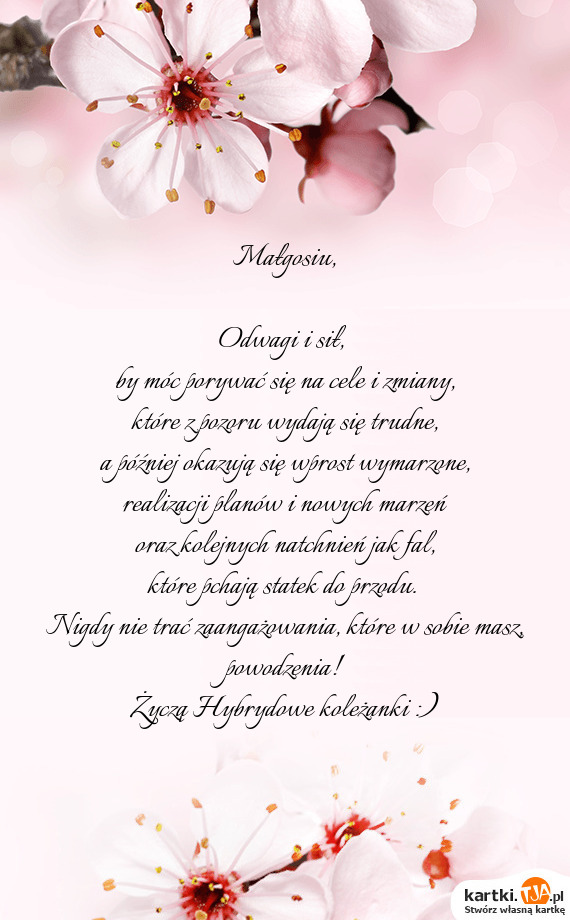 Małgosiu,
Odwagi i sił,
by móc porywać się na cele i zmiany,
które z pozoru wydają się trudne,
a później okazują się wprost wymarzone,
realizacji planów i nowych marzeń
oraz kolejnych natchnień jak fal,
które pchają statek do przodu.
Nigdy nie trać zaangażowania, które w sobie masz,
powodzenia!
Życzą Hybrydowe koleżanki :)
kartki.TJA.pl
Stwórz własną kartkę